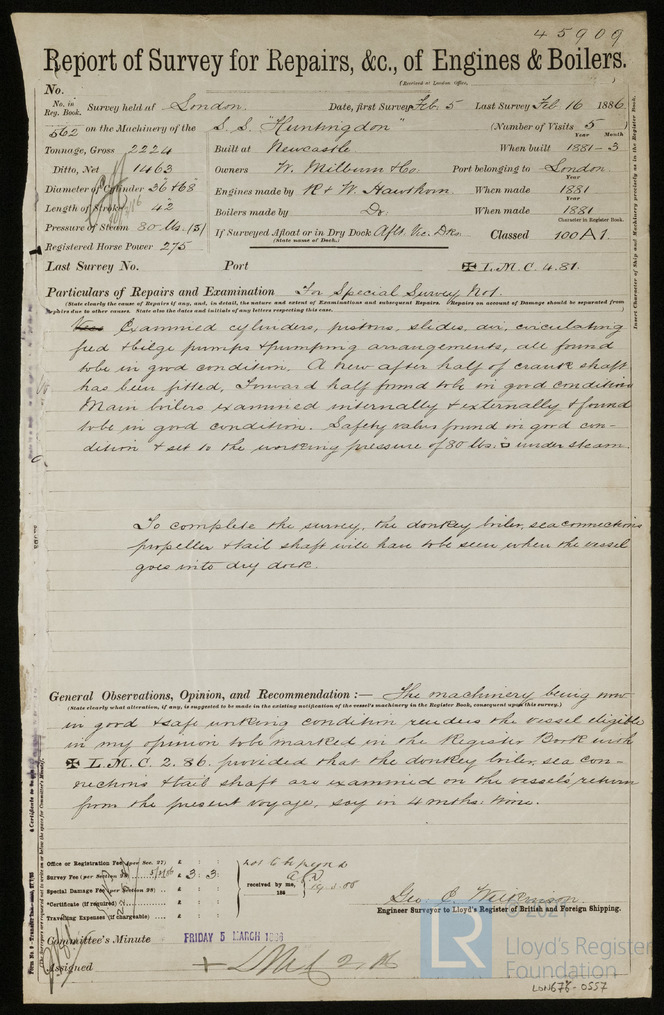 45909
Report of Survey for Repairs, &c., of Engines & Boilers.
(Received at London Office, )
No.
No. in Reg. Book. Survey held at London. Date, first Survey Feb. 5 Last Survey Feb. 16 1886
562 on the Machinery of the S. S. "Huntingdon" (Number of Visits 5)
Year Month
Tonnage, Gross 2224 Built at Newcastle When built 1881-3
Ditto, Net 1463 Owners W. Milburn & Co. Port belonging to London
Year
Diameter of Cylinder 36 + 68 Engines made by R & W. Hawthorn When made 1881
Year
Length of Stroke 42 Boilers made by Do. When made 1881
Character in Register Book.
Pressure of Steam 80 lbs. (S) If Surveyed Afloat or in Dry Dock Aflt. Vic. Dks. Classed 100 A1.
(State name of Dock.)
Registered Horse Power 275
Last Survey No. Port ✠ L.M.C. 4.81.
Particulars of Repairs and Examination For Special Survey No1.
(State clearly the cause of Repairs if any, and, in detail, the nature and extent of Examinations and subsequent Repairs. Repairs on account of Damage should be separated from
Repairs due to other causes. State also the dates and initials of any letters respecting this case.)
Examined cylinders, pistons, slides, air, circulating
feed & bilge pumps & pumping arrangements, all found
to be in good condition. A new after half of crank shaft
has been fitted, Forward half found to be in good condition
Main boilers examined internally & externally & found
to be in good condition. Safety valves found in good con-
dition & set to the working pressure of 80 lbs. □ under steam.
To complete the survey, the donkey boiler, sea connections
propeller & tail shaft will have to be seen when the vessel
goes into dry dock.
General Observations, Opinion, and Recommendation :— The machinery being now
(State clearly what alteration, if any, is suggested to be made in the existing notification of the vessel's machinery in the Register Book, consequent upon this survey.)
in good & safe working condition renders the vessel eligible
in my opinion to be marked in the Register Book with
✠ L.M.C. 2.86. provided that the donkey boiler, sea con-
nections & tail shaft are examined on the vessel's return
from the present voyage, say in 4 mths: time.
Office or Registration Fee (per Sec. 27) £ : :
Survey Fee (per Section 28) £ 3 : 3 :
Special Damage Fee (per Section 28) £ : :
received by me,
188
*Certificate (if required) £ : :
Travelling Expenses (if chargeable) £ : :
Geo. C. Wilkinson.
Engineer Surveyor to Lloyd's Register of British and Foreign Shipping.
Committee's Minute FRIDAY 5 MARCH 1886
Assigned + LMC 2.86
Insert Character of Ship and Machinery precisely as in the Register Book.
© 2021
LR
Lloyd's Register
Foundation
LON676-0557